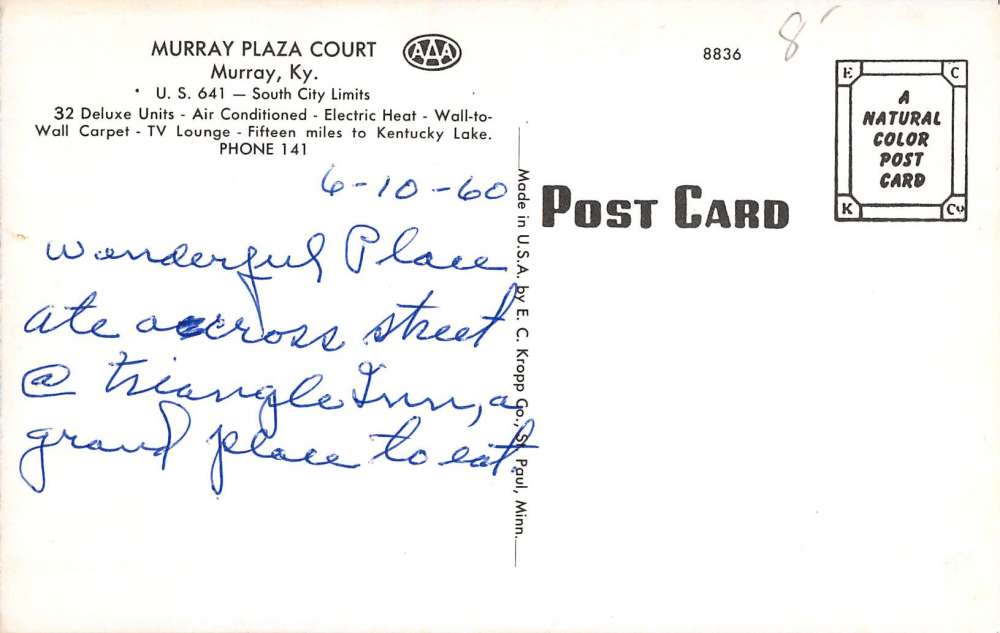 MURRAY PLAZA COURT
AAA
Murray, Ky.
U. S. 641 — South City Limits
32 Deluxe Units - Air Conditioned - Electric Heat - Wall-to-
Wall Carpet - TV Lounge - Fifteen miles to Kentucky Lake.
PHONE 141
6-10-60
Wonderful Place
Ate across street
@ Triangle Inn, a
grand place to eat.
Made in U.S.A. by E. C. Kropp Co., St. Paul, Minn.
8836
8
POST CARD
E C
A
NATURAL
COLOR
POST
CARD
K Co